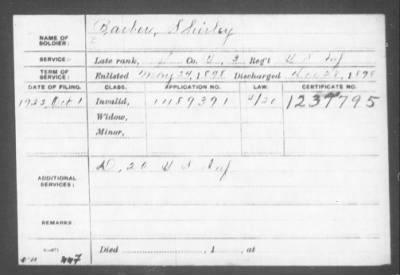 NAME OF SOLDIER: Barber, Shirley
SERVICE: Late rank, Co. G, 2 Reg't U S Inf
TERM OF SERVICE: Enlisted May 24, 1898 Discharged Dec 28, 1898
DATE OF FILING. CLASS. APPLICATION NO. LAW. CERTIFICATE NO.
1922, Oct 1 Invalid, 1237795
Widow,
Minor,
ADDITIONAL SERVICES: D, 20 U S Inf
REMARKS
Died , 1 , at
447